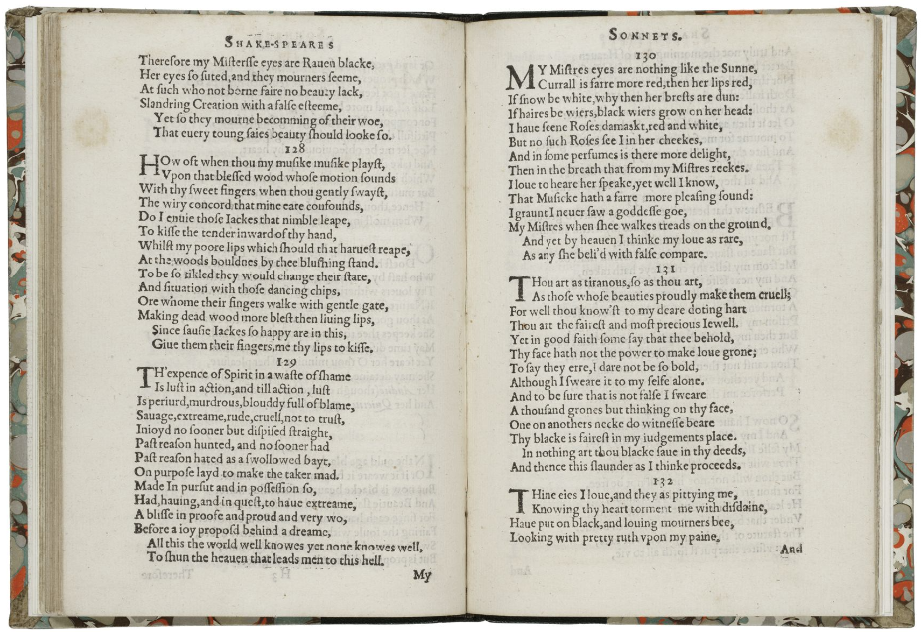 SHAKE-SPEARES
Therefore my Miſterſſe eyes are Rauen blacke,
Her eyes ſo ſuted, and they mourners ſeeme,
At ſuch who not borne faire no beauty lack,
Slandring Creation with a falſe eſteeme,
Yet ſo they mourne becomming of their woe,
That euery toung ſaies beauty ſhould looke ſo.
128
HOw oft when thou my muſike muſike playſt,
Vpon that bleſſed wood whoſe motion ſounds
With thy ſweet fingers when thou gently ſwayſt,
The wiry concord that mine eare confounds,
Do I enuie thoſe Iackes that nimble leape,
To kiſſe the tender inward of thy hand,
Whilſt my poore lips which ſhould that harueſt reape,
At the woods bouldnes by thee bluſhing ſtand.
To be ſo tikled they would change their ſtate,
And ſituation with thoſe dancing chips,
Ore whome their fingers walke with gentle gate,
Making dead wood more bleſt then liuing lips,
Since ſauſie Iackes ſo happy are in this,
Giue them their fingers, me thy lips to kiſſe,
129
TH'expence of Spirit in a waſte of ſhame
Is luſt in action, and till action, luſt
Is periurd, murdrous, blouddy full of blame,
Sauage, extreame, rude, cruell, not to truſt,
Inioyd no ſooner but diſpiſed ſtraight,
Paſt reaſon hunted, and no ſooner had
Paſt reaſon hated as a ſwollowed bayt,
On purpoſe layd to make the taker mad.
Made In purſut and in poſſeſſion ſo,
Had, hauing, and in queſt, to haue extreame,
A bliſſe in proofe and proud and very wo,
Before a ioy propoſd behind a dreame,
All this the world well knowes yet none knowes well,
To ſhun the heauen that leads men to this hell.
My
SONNETS.
130
MY Miſtres eyes are nothing like the Sunne,
Currall is farre more red, then her lips red,
If ſnow be white, why then her breſts are dun:
If haires be wiers, black wiers grow on her head:
I haue ſeene Roſes damaskt, red and white,
But no ſuch Roſes ſee I in her cheekes,
And in ſome perfumes is there more delight,
Then in the breath that from my Miſtres reekes.
I loue to heare her ſpeake, yet well I know,
That Muſicke hath a farre more pleaſing ſound:
I graunt I neuer ſaw a goddeſſe goe,
My Miſtres when ſhee walkes treads on the ground.
And yet by heauen I thinke my loue as rare,
As any ſhe beli'd with falſe compare.
131
THou art as tiranous, ſo as thou art,
As thoſe whoſe beauties proudly make them cruell;
For well thou know'ſt to my deare doting hart
Thou art the faireſt and moſt precious Iewell.
Yet in good faith ſome ſay that thee behold,
Thy face hath not the power to make loue grone;
To ſay they erre, I dare not be ſo bold,
Although I ſweare it to my ſelfe alone.
And to be ſure that is not falſe I ſweare
A thouſand grones but thinking on thy face,
One on anothers necke do witneſſe beare
Thy blacke is faireſt in my iudgements place.
In nothing art thou blacke ſaue in thy deeds,
And thence this ſlaunder as I thinke proceeds.
132
THine eies I loue, and they as pittying me,
Knowing thy heart torment me with diſdaine,
Haue put on black, and louing mourners bee,
Looking with pretty ruth vpon my paine,
And